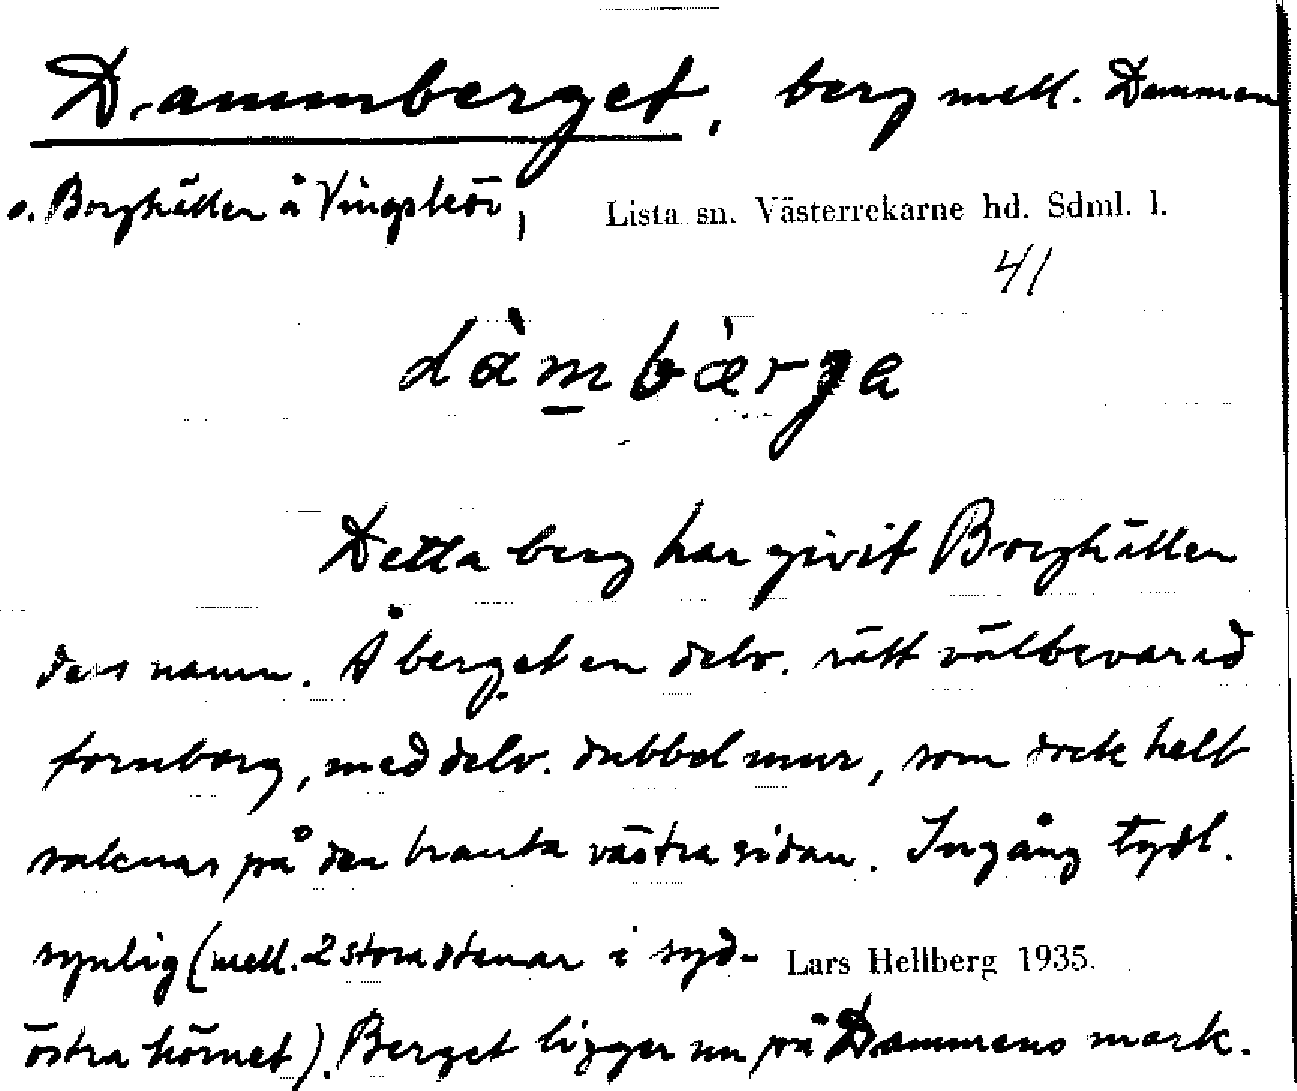 Dammberget, berg mell. Dammen
o. Borghällen å Vingsleör,
Lista sn. Västerrekarne hd. Sdml. l.
41
dàmbærga
Detta berg har givit Borghällen
dess namn. Å berget en delv. rätt välbevarad
fornborg, med delv. dubbel mur, som dock helt
saknas på den branta västra sidan. Ingång tydl.
synlig (mell. 2 stora stenar i syd-
Lars Hellberg 1935.
östra hörnet). Berget ligger nu på Dammens mark.